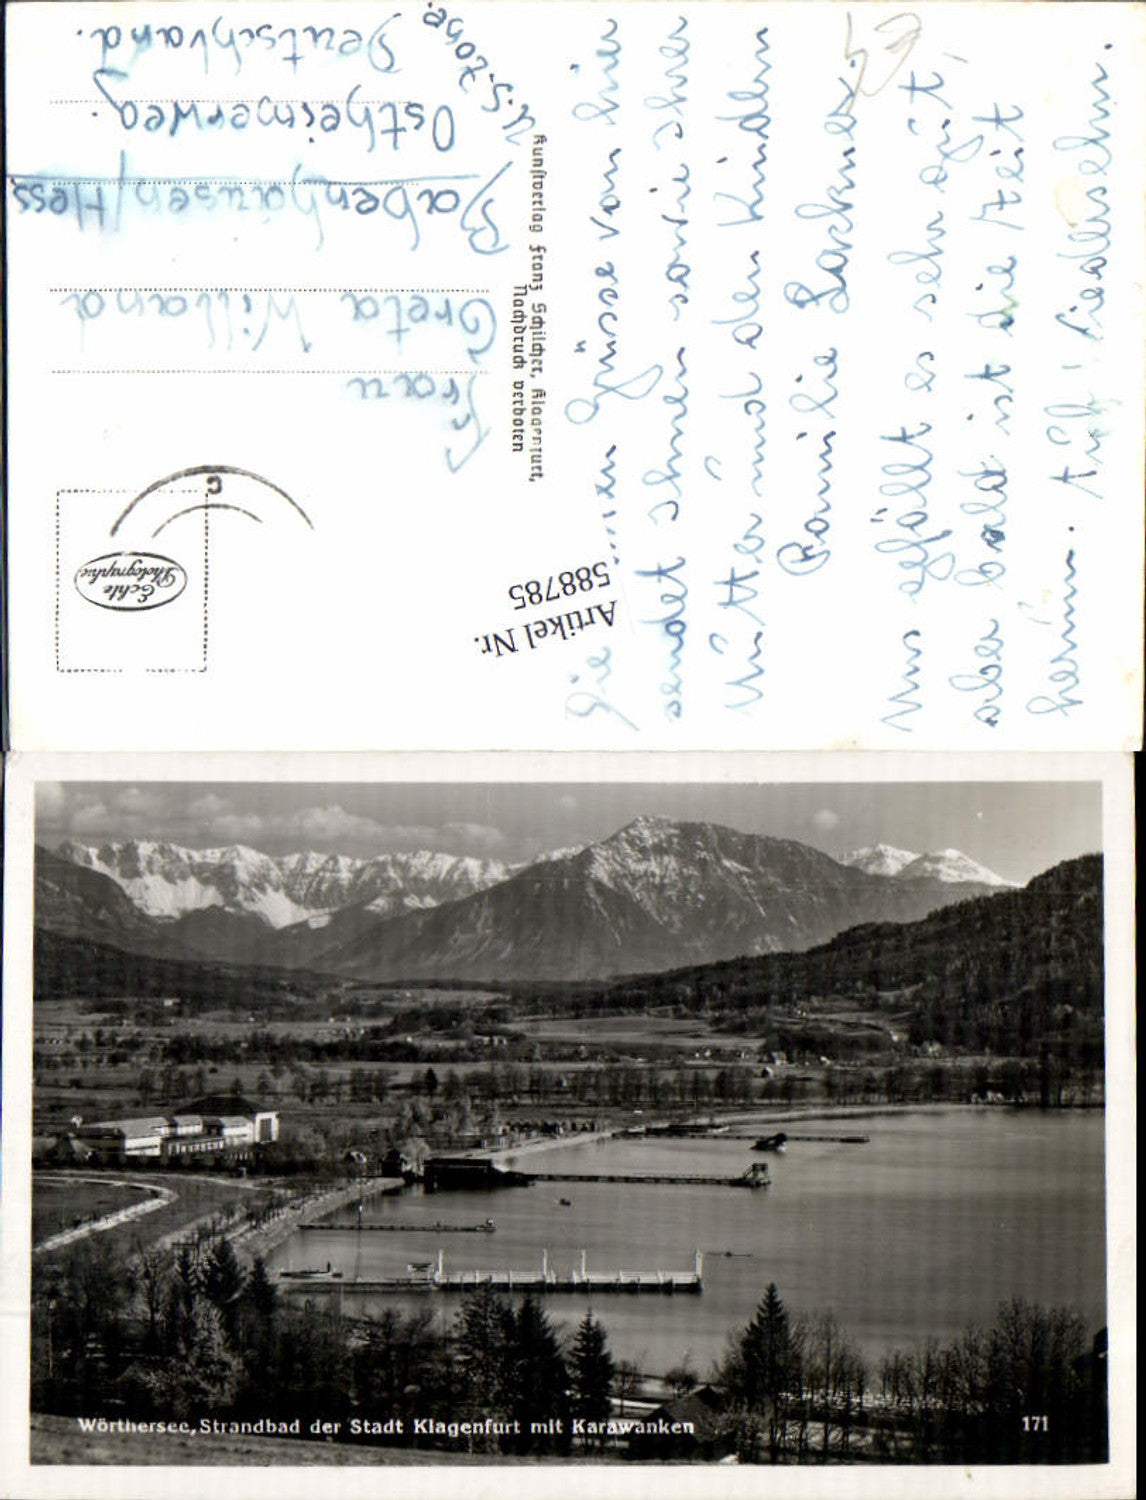 Die gönnen Grüsse von hier
sendet Ihnen sowie Ihrer
Mutter und den Kindern
Familie Lackner.
Uns gefällt es sehr gut,
aber bald ist die Zeit
herum. Auf Wiedersehn.
Kunstverlag Franz Schilcher, Klagenfurt,
Nachdruck verboten
Frau
Greta Willand
Babenhausen/Hess.
Ostheimerweg.
U.S. Zone.
Deutschland.
Echte
Photographie
Artikel Nr.
588785
Wörthersee, Strandbad der Stadt Klagenfurt mit Karawanken
171